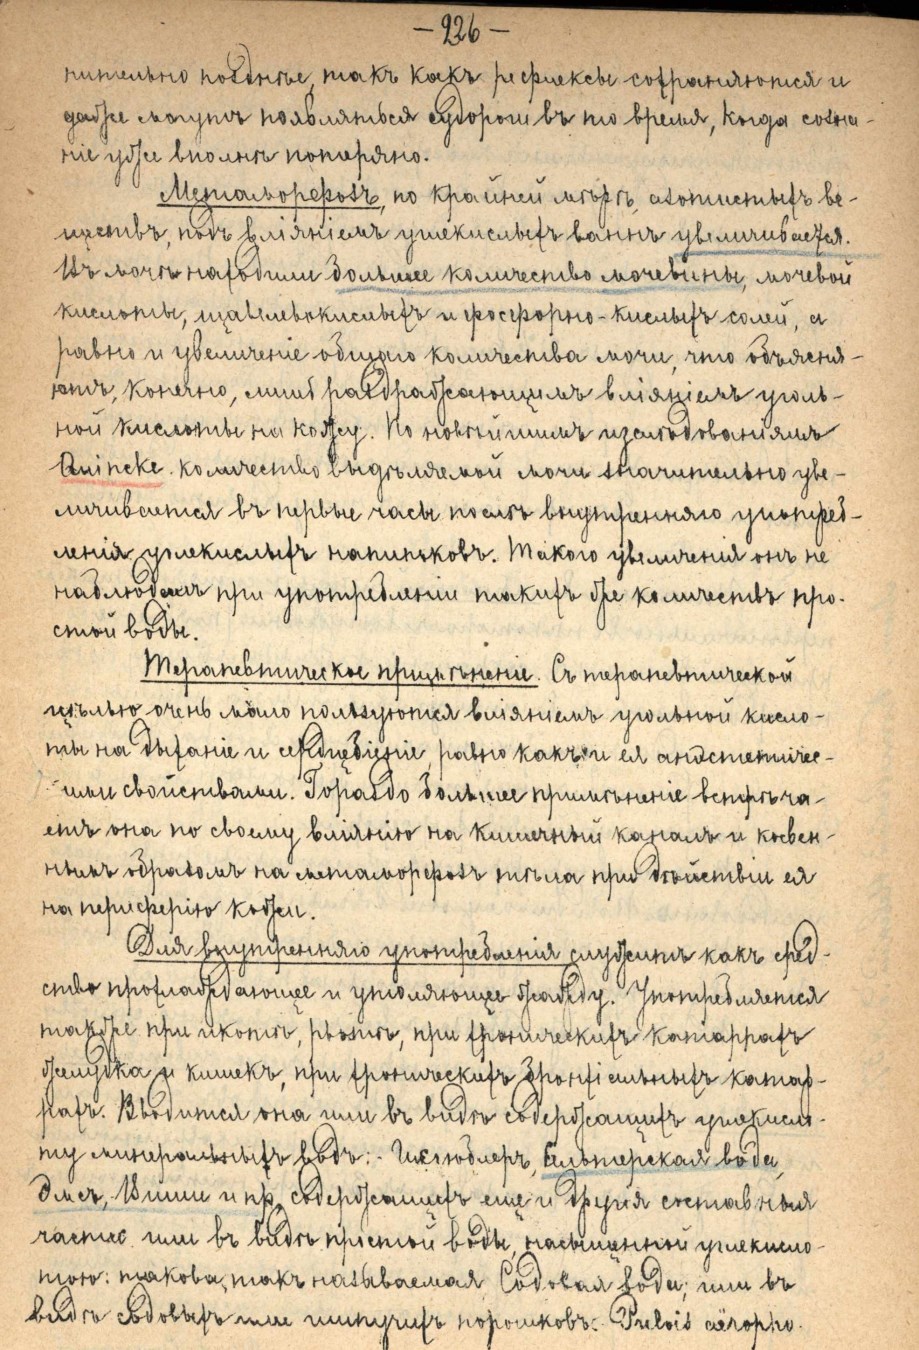 – 226 –
нительно позднѣе, такъ какъ рефлексы сохраняются и
даже могутъ появляться судороги въ то время, когда созна-
ніе уже вполнѣ потеряно.
Метаморфозъ, по крайней мѣрѣ, азотистыхъ ве-
ществъ, подъ вліяніемъ углекислыхъ ваннъ увеличивается.
Въ мочѣ находили большее количество мочевины, мочевой
кислоты, щавелевокислыхъ и фосфорно-кислыхъ солей, а
равно и увеличеніе общаго количества мочи, что объясня-
ютъ, конечно, лишь раздражающимъ вліяніемъ уголь-
ной кислоты на кожу. По новѣйшимъ изслѣдованіямъ
Quincke количество выдѣляемой мочи значительно уве-
личивается въ первые часы послѣ внутренняго употреб-
ленія углекислыхъ напитковъ. Такого увеличенія онъ не
наблюдалъ при употребленіи такихъ же количествъ про-
стой воды.
Терапевтическое примѣненіе. Съ терапевтической
цѣлью очень мало пользуются вліяніемъ угольной кисло-
ты на дыханіе и сердцебіеніе, равно какъ и ея анэстетичес-
ими свойствами. Гораздо большее примѣненіе встрѣча-
етъ она по своему вліянію на кишечный каналъ и косвен-
нымъ образомъ на метаморфозъ тѣла при дѣйствіи ея
на периферію кожи.
Для внутренняго употребленія служитъ какъ сред-
ство прохлаждающее и утоляющее жажду. Употребляется
также при икотѣ, рвотѣ, при хроническихъ катаррахъ
желудка и кишекъ, при хроническихъ бронхіальныхъ катар-
рахъ. Вводится она или въ видѣ содержащихъ углекисло-
ту минеральныхъ водъ: Гисгюблеръ, Сельтерская вода,
Эмсъ, Виши и пр, содержащихъ еще и другія составныя
части или въ видѣ простой воды, насыщенной углекисло-
тою: такова, такъ называемая, Содовая вода; или въ
видѣ содовыхъ или шипучихъ порошковъ: Pulvis aёropho-